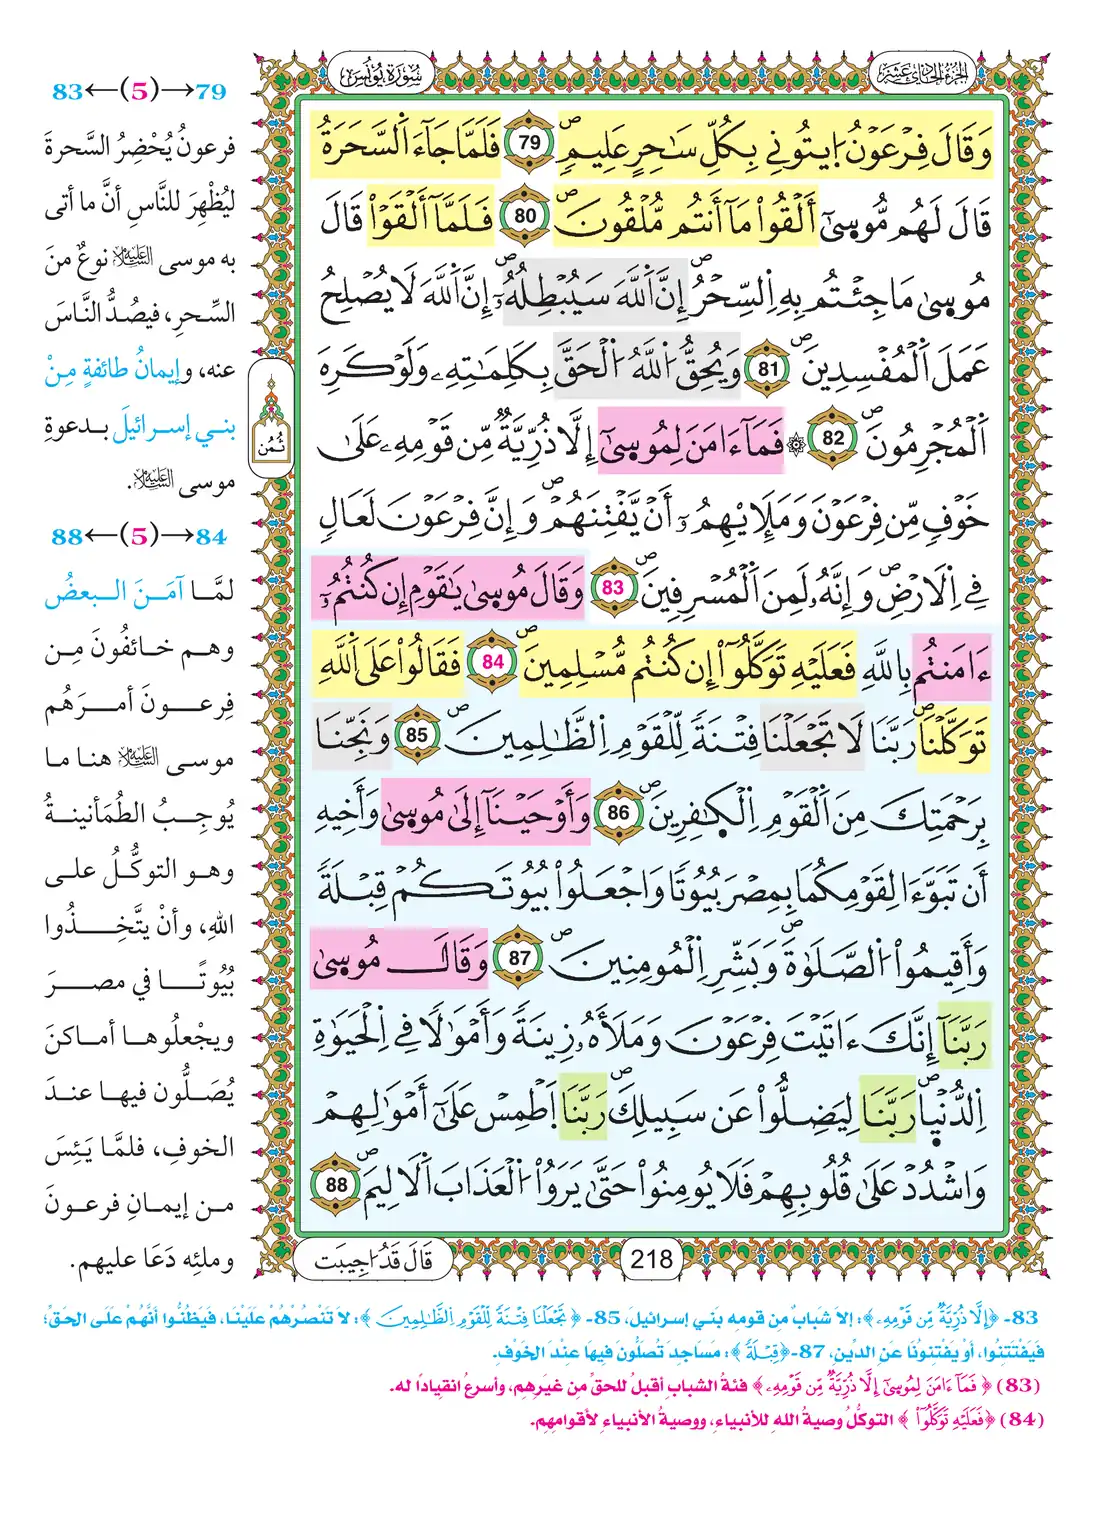 الجزء الحادي عشر
سورة يونس
وَقَالَ فِرْعَوْنُ اُ۪يتُونِے بِكُلِّ سَٰحِرٍ عَلِيمٖۖ 79 فَلَمَّا جَآءَ اَ۬لسَّحَرَةُ
قَالَ لَهُم مُّوس۪يٰٓ أَلْقُواْ مَآ أَنتُم مُّلْقُونَۖ 80 فَلَمَّآ أَلْقَوْاْ قَالَ
مُوس۪يٰ مَا جِئْتُم بِهِ اِ۬لسِّحْرُۖ إِنَّ اَ۬للَّهَ سَيُبْطِلُهُۥٓۖ إِنَّ اَ۬للَّهَ لَا يُصْلِحُ
عَمَلَ اَ۬لْمُفْسِدِينَۖ 81 وَيُحِقُّ اُ۬للَّهُ اُ۬لْحَقَّ بِكَلِمَٰتِهِۦ وَلَوْ كَرِهَ
اَ۬لْمُجْرِمُونَۖ 82 ۞ فَمَآ ءَامَنَ لِمُوس۪يٰٓ إِلَّا ذُرِّيَّةٞ مِّن قَوْمِهِۦ عَلَىٰ
خَوْفٖ مِّن فِرْعَوْنَ وَمَلَإِيْهِمُۥٓ أَنْ يَّفْتِنَهُمْۖ وَإِنَّ فِرْعَوْنَ لَعَالٖ
فِے اِ۬لَارْضِۖ وَإِنَّهُۥ لَمِنَ اَ۬لْمُسْرِفِينَۖ 83 وَقَالَ مُوس۪يٰ يَٰقَوْمِ إِن كُنتُمُۥٓ
ءَامَنتُم بِاللَّهِ فَعَلَيْهِ تَوَكَّلُوٓاْ إِن كُنتُم مُّسْلِمِينَۖ 84 فَقَالُواْ عَلَي اَ۬للَّهِ
تَوَكَّلْنَاۖ رَبَّنَا لَا تَجْعَلْنَا فِتْنَةٗ لِّلْقَوْمِ اِ۬لظَّٰلِمِينَۖ 85 وَنَجِّنَا
بِرَحْمَتِكَ مِنَ اَ۬لْقَوْمِ اِ۬لْكٰ۪فِرِينَۖ 86 وَأَوْحَيْنَآ إِلَىٰ مُوس۪يٰ وَأَخِيهِ
أَن تَبَوَّءَا لِقَوْمِكُمَا بِمِصْرَ بُيُوتٗا وَاجْعَلُواْ بُيُوتَكُمْ قِبْلَةٗ
وَأَقِيمُواْ اُ۬لصَّلَوٰةَۖ وَبَشِّرِ اِ۬لْمُومِنِينَۖ 87 وَقَالَ مُوس۪يٰ
رَبَّنَآ إِنَّكَ ءَاتَيْتَ فِرْعَوْنَ وَمَلَأَهُۥ زِينَةٗ وَأَمْوَٰلٗا فِے اِ۬لْحَيَوٰةِ
اِ۬لدُّنْي۪اۖ رَبَّنَا لِيَضِلُّواْ عَن سَبِيلِكَۖ رَبَّنَا اَ۪طْمِسْ عَلَىٰٓ أَمْوَٰلِهِمْ
وَاشْدُدْ عَلَىٰ قُلُوبِهِمْ فَلَا يُومِنُواْ حَتَّىٰ يَرَوُاْ اُ۬لْعَذَابَ اَ۬لَالِيمَۖ 88
218
قَالَ قَدُ ا۟جِيبَت
ثُمُن
79→(5)←83
فرعونُ يُحْضِرُ السَّحرةَ
ليُظْهِرَ للنَّاسِ أنَّ ما أتى
به موسى عليه السلام نوعٌ منَ
السِّحرِ، فيصُدُّ النَّاسَ
عنه، وإيمانُ طائفةٍ مِنْ
بني إسرائيلَ بدعوةِ
موسى عليه السلام.
84→(5)←88
لمَّا آمَنَ البعضُ
وهم خائفُونَ مِن
فِرعونَ أمرَهُم
موسى عليه السلام هنا ما
يُوجِبُ الطُمَأنينةُ
وهو التوكُّلُ على
اللهِ، وأنْ يتَّخِذُوا
بُيُوتًا في مصرَ
ويجْعلُوها أماكنَ
يُصَلُّون فيها عندَ
الخوفِ، فلمَّا يَئِسَ
من إيمانِ فرعونَ
وملئِه دَعَا عليهم.
83- ﴿إِلَّا ذُرِّيَّةٞ مِّن قَوْمِهِۦ﴾: إلا شَبابٌ مِن قومِه بَني إسرائيلَ، 85- ﴿تَجْعَلْنَا فِتْنَةٗ لِّلْقَوْمِ اِ۬لظَّٰلِمِينَ﴾: لا تَنْصُرْهُمْ عَلَيْنَا، فَيَظُنُّوا أَنَّهُمْ عَلَى الحَقِّ؛
فَيَفْتَتِنُوا، أَوْ يَفْتِنُونَا عَنِ الدِّينِ، 87- ﴿قِبْلَةٗ﴾: مَسَاجِدَ تُصَلُّونَ فِيهَا عِنْدَ الخَوْفِ.
(83) ﴿فَمَآ ءَامَنَ لِمُوس۪يٰٓ إِلَّا ذُرِّيَّةٞ مِّن قَوْمِهِۦ﴾ فئةُ الشبابِ أقبلُ للحقِّ مِن غيرِهِم، وأسرعُ انقياداً له.
(84) ﴿فَعَلَيْهِ تَوَكَّلُوٓاْ﴾ التوكلُ وصيةُ اللهِ للأنبياءِ، ووصيةُ الأنبياءِ لأقوامِهِم.